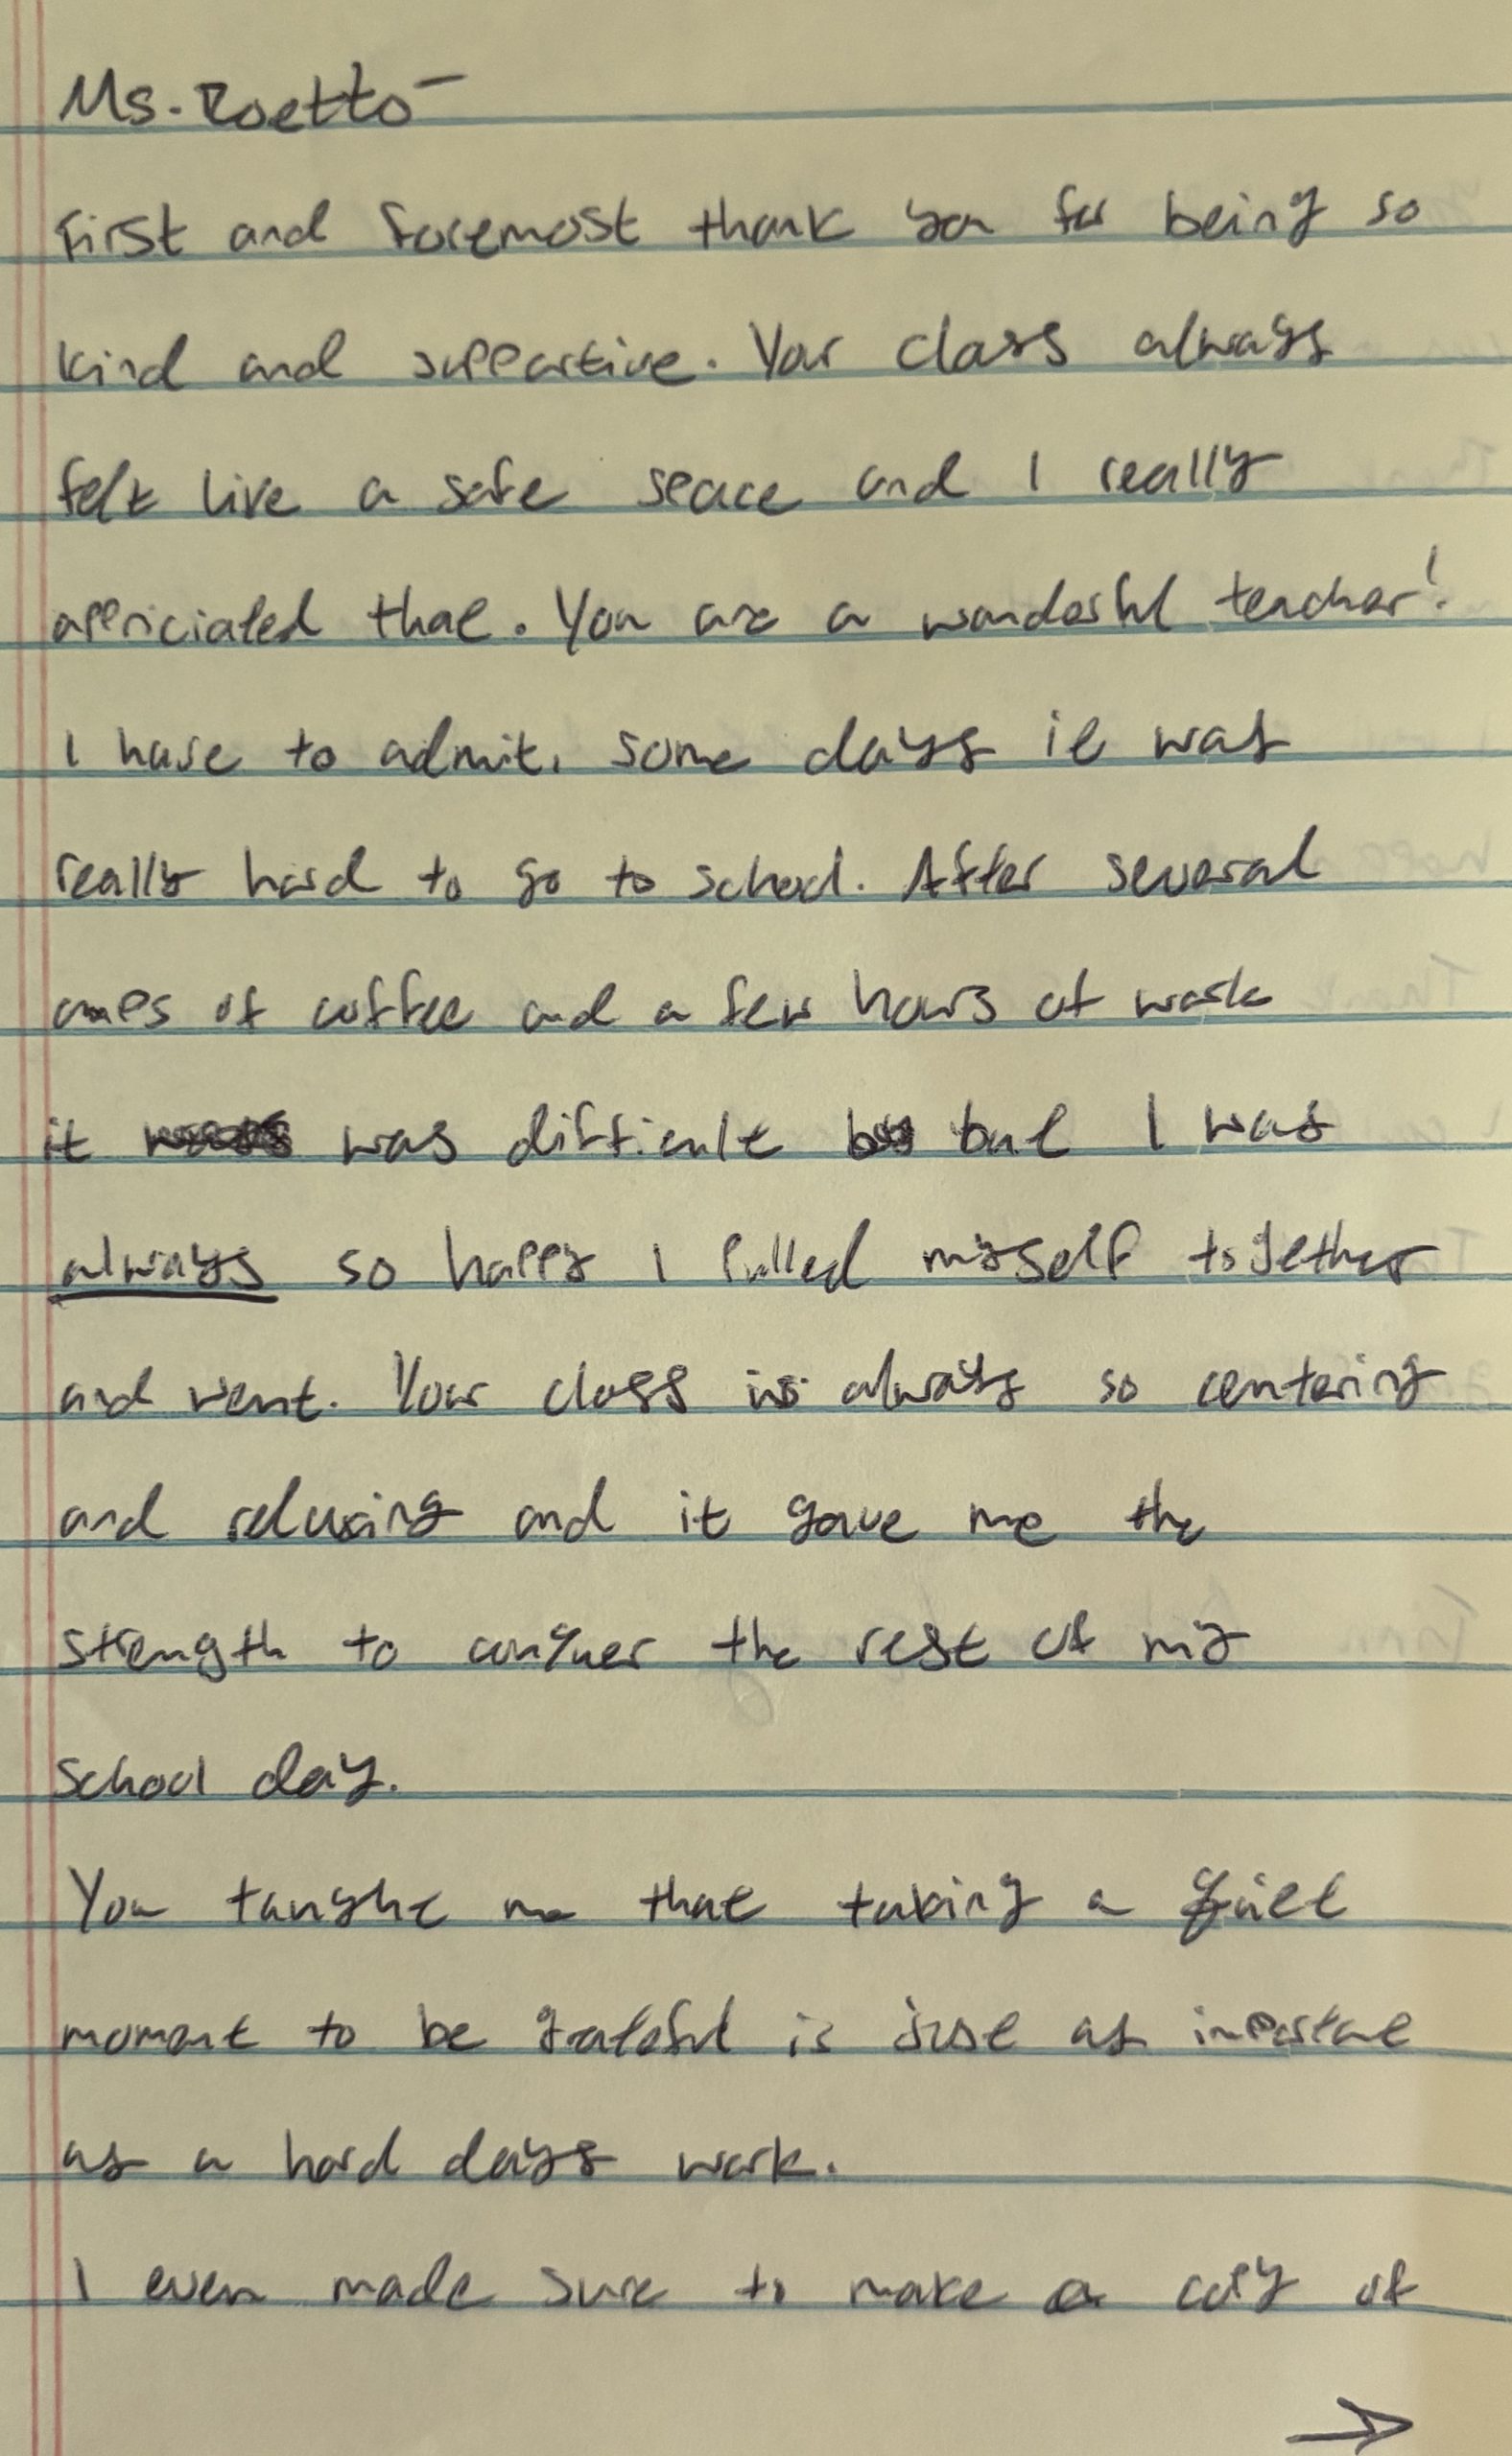 Ms. Roetto-
First and foremost thank you for being so
kind and supportive. Your class always
felt like a safe space and I really
appriciated that. You are a wonderful teacher!
I have to admit, some days it was
really hard to go to school. After several
cups of coffee and a few hours of work
it was difficult but I was
always so happy I pulled myself together
and went. Your class is always so centering
and relaxing and it gave me the
strength to conquer the rest of my
school day.
You taught me that taking a quiet
moment to be grateful is just as important
as a hard days work.
I even made sure to make a copy of
→